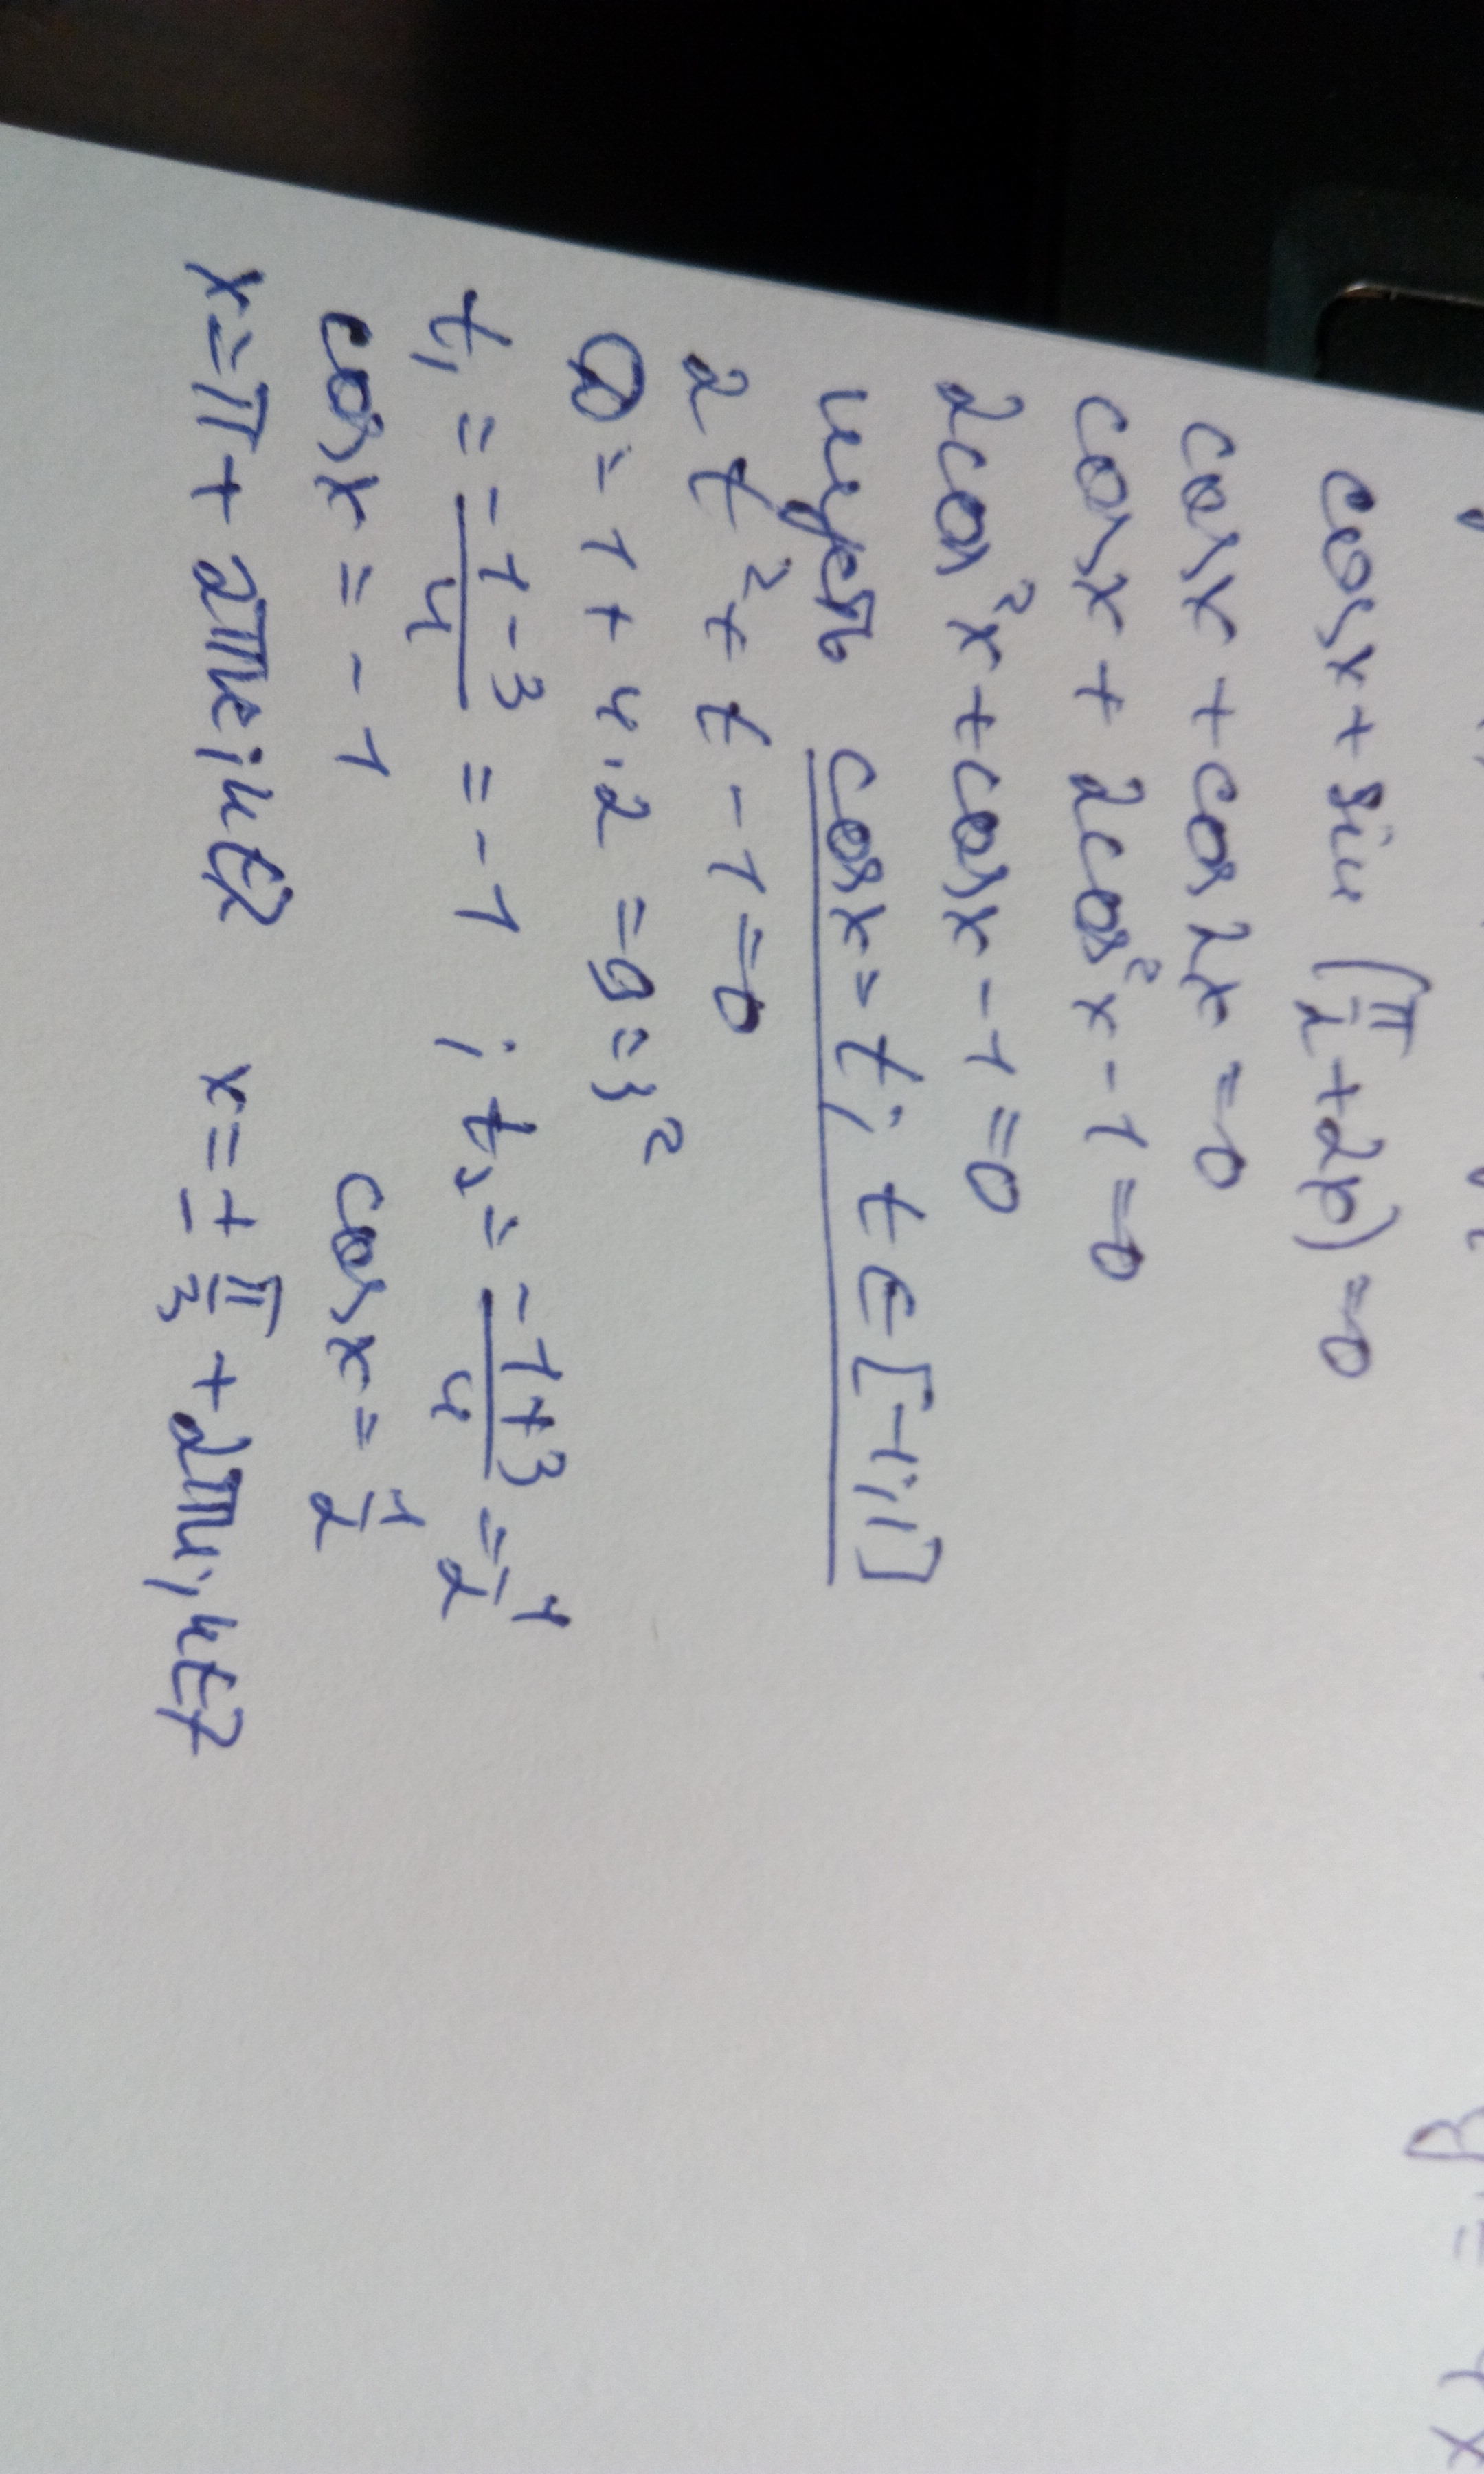 cos x + sin (π/2 + 2x) = 0
cos x + cos 2x = 0
cos x + 2cos²x - 1 = 0
2cos²x + cos x - 1 = 0
пусть cos x = t; t ∈ [-1; 1]
2t² + t - 1 = 0
D = 1 + 4·2 = 9 = 3²
t₁ = (-1-3)/4 = -1 ; t₂ = (-1+3)/4 = 1/2
cos x = -1 cos x = 1/2
x = π + 2πn; n∈Z x = ± π/3 + 2πn; n∈Z